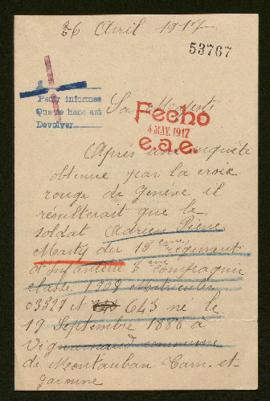 26 Avril 1917
53767
Para informes
Que se hace así
Devolver
Sa Majesté
Fecho
4 MAY. 1917
e.a.e.
Après une enquête
obtenue par la croix
rouge de Genève il
résulterait que le
soldat Adrien Pierre
Marty du 15eme Régiment
d'Infanterie 6eme Compagnie
classe 1908 Matricules
03821 et 643 né le
17 Septembre 1888 à
de Montauban Tarn-et-
garonne